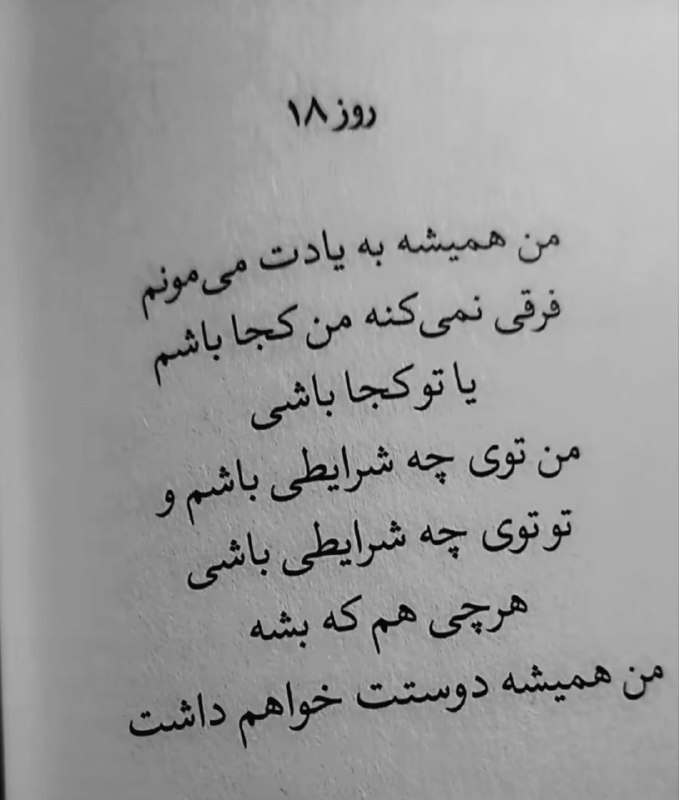 روز ۱۸
من همیشه به یادت می‌مونم
فرقی نمی‌کنه من کجا باشم
یا تو کجا باشی
من توی چه شرایطی باشم و
تو توی چه شرایطی باشی
هرچی هم که بشه
من همیشه دوستت خواهم داشت